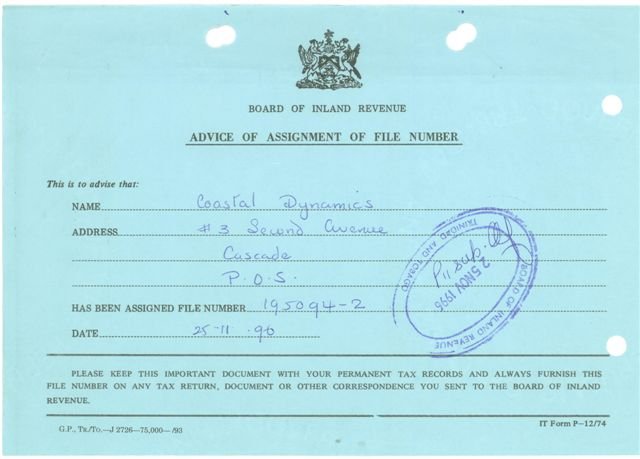 BOARD OF INLAND REVENUE
ADVICE OF ASSIGNMENT OF FILE NUMBER
This is to advise that:
NAME Coastal Dynamics
ADDRESS #3 Second Avenue
Cascade
P.O.S.
HAS BEEN ASSIGNED FILE NUMBER 195094-2
DATE 25-11-96
TRINIDAD AND TOBAGO
25 NOV 1996
BOARD OF INLAND REVENUE
PLEASE KEEP THIS IMPORTANT DOCUMENT WITH YOUR PERMANENT TAX RECORDS AND ALWAYS FURNISH THIS
FILE NUMBER ON ANY TAX RETURN, DOCUMENT OR OTHER CORRESPONDENCE YOU SENT TO THE BOARD OF INLAND
REVENUE.
G.P., TR./TO.—J 2726—75,000—/93
IT Form P—12/74